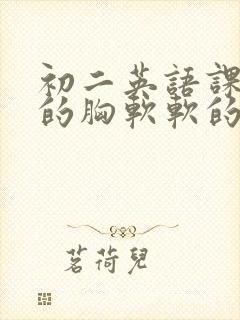 初二英語課
的胸軟軟的
茗荷兒